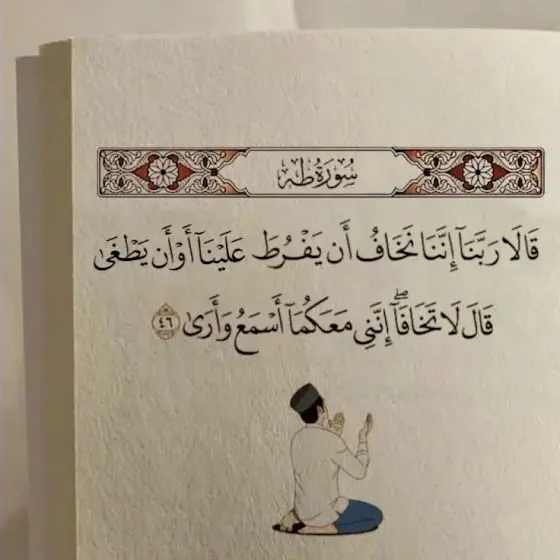 سُورَةُ طه
قَالَا رَبَّنَآ إِنَّنَا نَخَافُ أَن يَفْرُطَ عَلَيْنَآ أَوْ أَن يَطْغَىٰ
قَالَ لَا تَخَافَآ ۖ إِنَّنِى مَعَكُمَآ أَسْمَعُ وَأَرَىٰ ٤٦